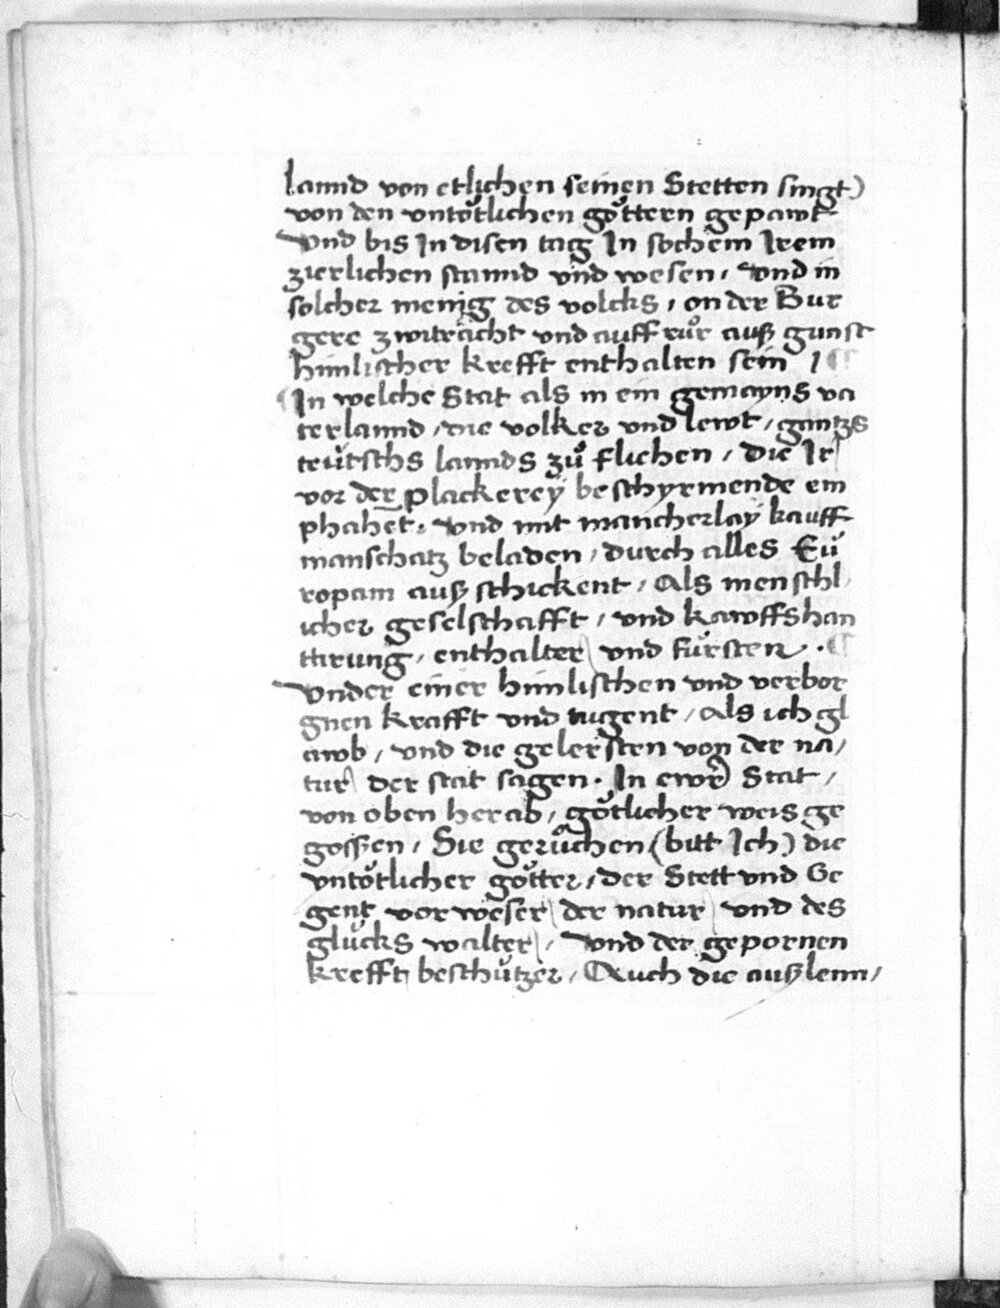 lannd von etlichen seinen Stetten singt)
von den vntötlichen göttern gepawt
vnd bis In disen tag In sochem Irem
zierlichen stannd vnd wesen, vnd in
solcher menig des volcks, on der Bur
gere zwiträcht vnd auffrůr auß gunst
himlischer krefft enthalten sein /
In welche Stat als in ein gemayns va
terlannd, die volker vnd lewt, gantzs
teütschs lannds zů flichen, die Ir
vor der plackereÿ beschyrmende em
phahet, vnd mit mancherlaÿ kauff
manschatz beladen, durch alles Eü
ropam auß schickent, Als menschl
icher geselschafft, vnd kawffshan
thrung, enthalter vnd fürsten.
vnder einer himlischen vnd verbor
gnen krafft vnd tugent, Als ich gl
awb, vnd die gelersten von der na,
tur der stat sagen. In ewr Stat,
von oben herab, götlicher weis ge
gossen, Sie gerůchen (bitt Ich) die
vntötlicher götter, der Stett vnd Ge
gent vorweser der natur vnd des
glücks walter, vnd der gepornen
krefft beschützer, Auch die außlenn,